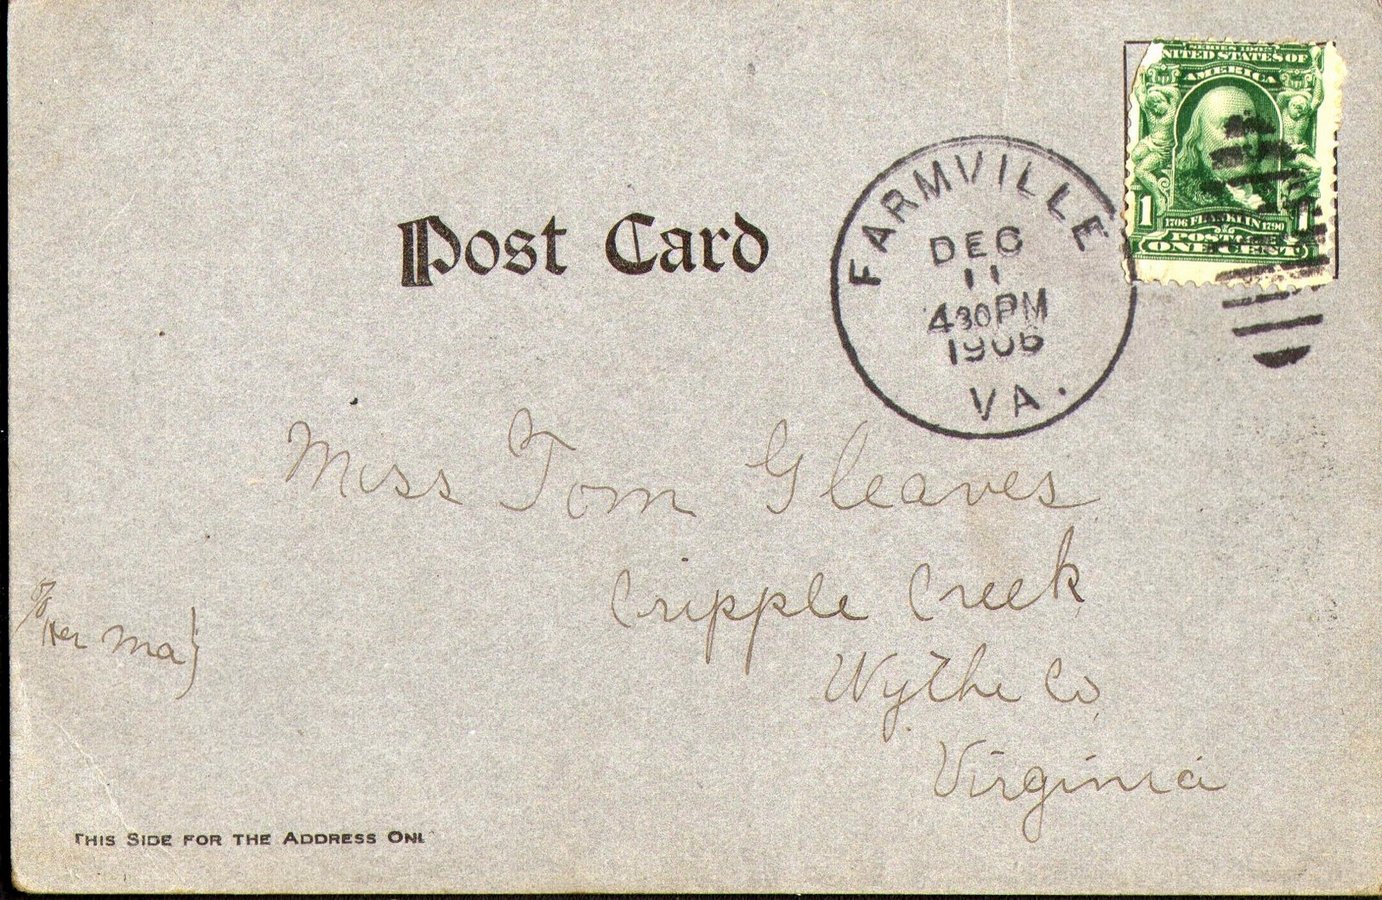 SERIES 1902
UNITED STATES OF
AMERICA
1 1
1706 FRANKLIN 1790
POSTAGE
ONE CENT
FARMVILLE
DEC
11
430PM
1906
VA.
Post Card
Miss Tom Gleaves
Cripple Creek
Wythe Co,
Virginia
c/o
Her Ma}
THIS SIDE FOR THE ADDRESS ONL